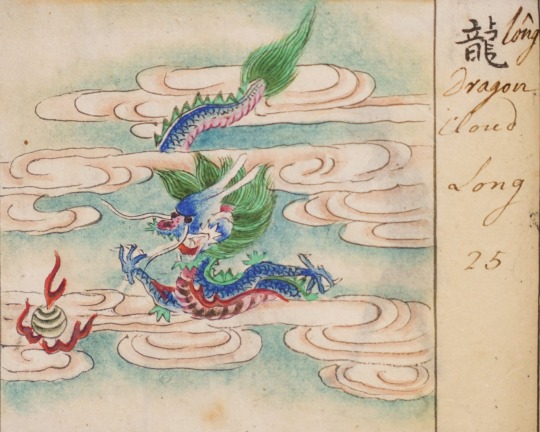 龍 lông
Dragon
Cloud
Long
25